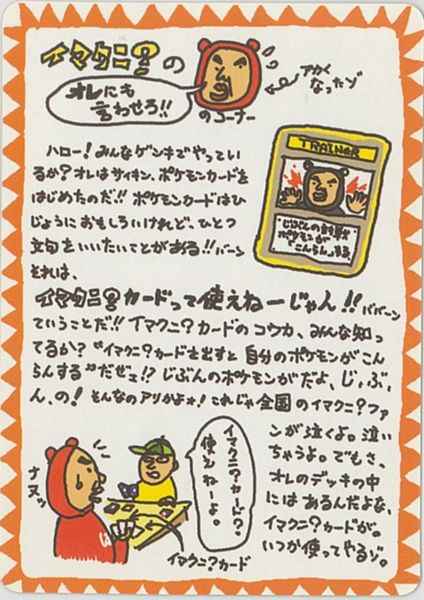 イマクニ?の
オレにも
言わせろ!!
のコーナー
アカく
なったゾ
ハロー!みんなゲンキでやってい
るか?オレはサイキン、ポケモンカードを
はじめたのだ!!ポケモンカードはひ
じょうにおもしろいけれど、ひとつ
文句をいいたいことがある!!バーン
それは、
TRAINER
じぶんの対戦
ポケモンが
こんらんする
イマクニ?カードって使えねーじゃん!!ババーン
ていうことだ!!イマクニ?カードのコウカ、みんな知っ
てるか?“イマクニ?カードを出すと自分のポケモンがこん
らんする”だぜェ!?じぶんのポケモンがだよ、じ、ぶ、
ん、の!そんなのアリかよォ!これじゃ全国のイマクニ?ファ
ンが泣くよ。泣い
ちゃうよ。でもさ、
オレのデッキの中
にはあるんだよな、
イマクニ?カードが。
いつか使ってやるゾ。
イマクニ?カード?
使えねーよ。
ナヌッ
イマクニ?カード